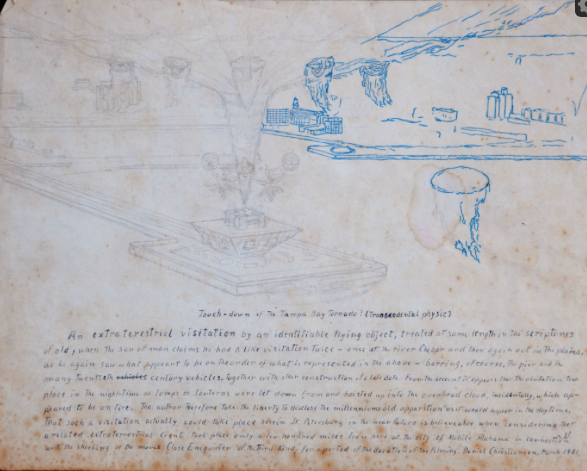 Touch-down of the Tampa Bay Tornado! (Transcendental physic)
An extraterrestrial visitation by an identifiable flying object, treated at same length in the scriptures
of old, when the son of man claims he had a like visitation twice - once at the river Chebar and then again out in the plains.
as he again saw what appears to be on the order of what is represented in the above - barring, of course, the pier and the
many twentieth vehicles century vehicles, together with other construction of a late date. From the account it appears that the visitation took
place in the nighttime as lamps or lanterns were let down from and hoisted up into the overhead cloud, incidentally, which ap-
peared to be on fire. The author therefore takes the liberty to disclose the millenniums old apparition as it would appear in the daytime,
that such a visitation actually could take place where in St Petersburg in the near future is believable when considering that
a related extraterrestrial event took place only a few hundred miles from here at the city of Mobile Alabama in
with the shooting of the movie Close Encounter of the Third Kind, for a period of the duration of the filming. Daniel Christiansen, March 1981